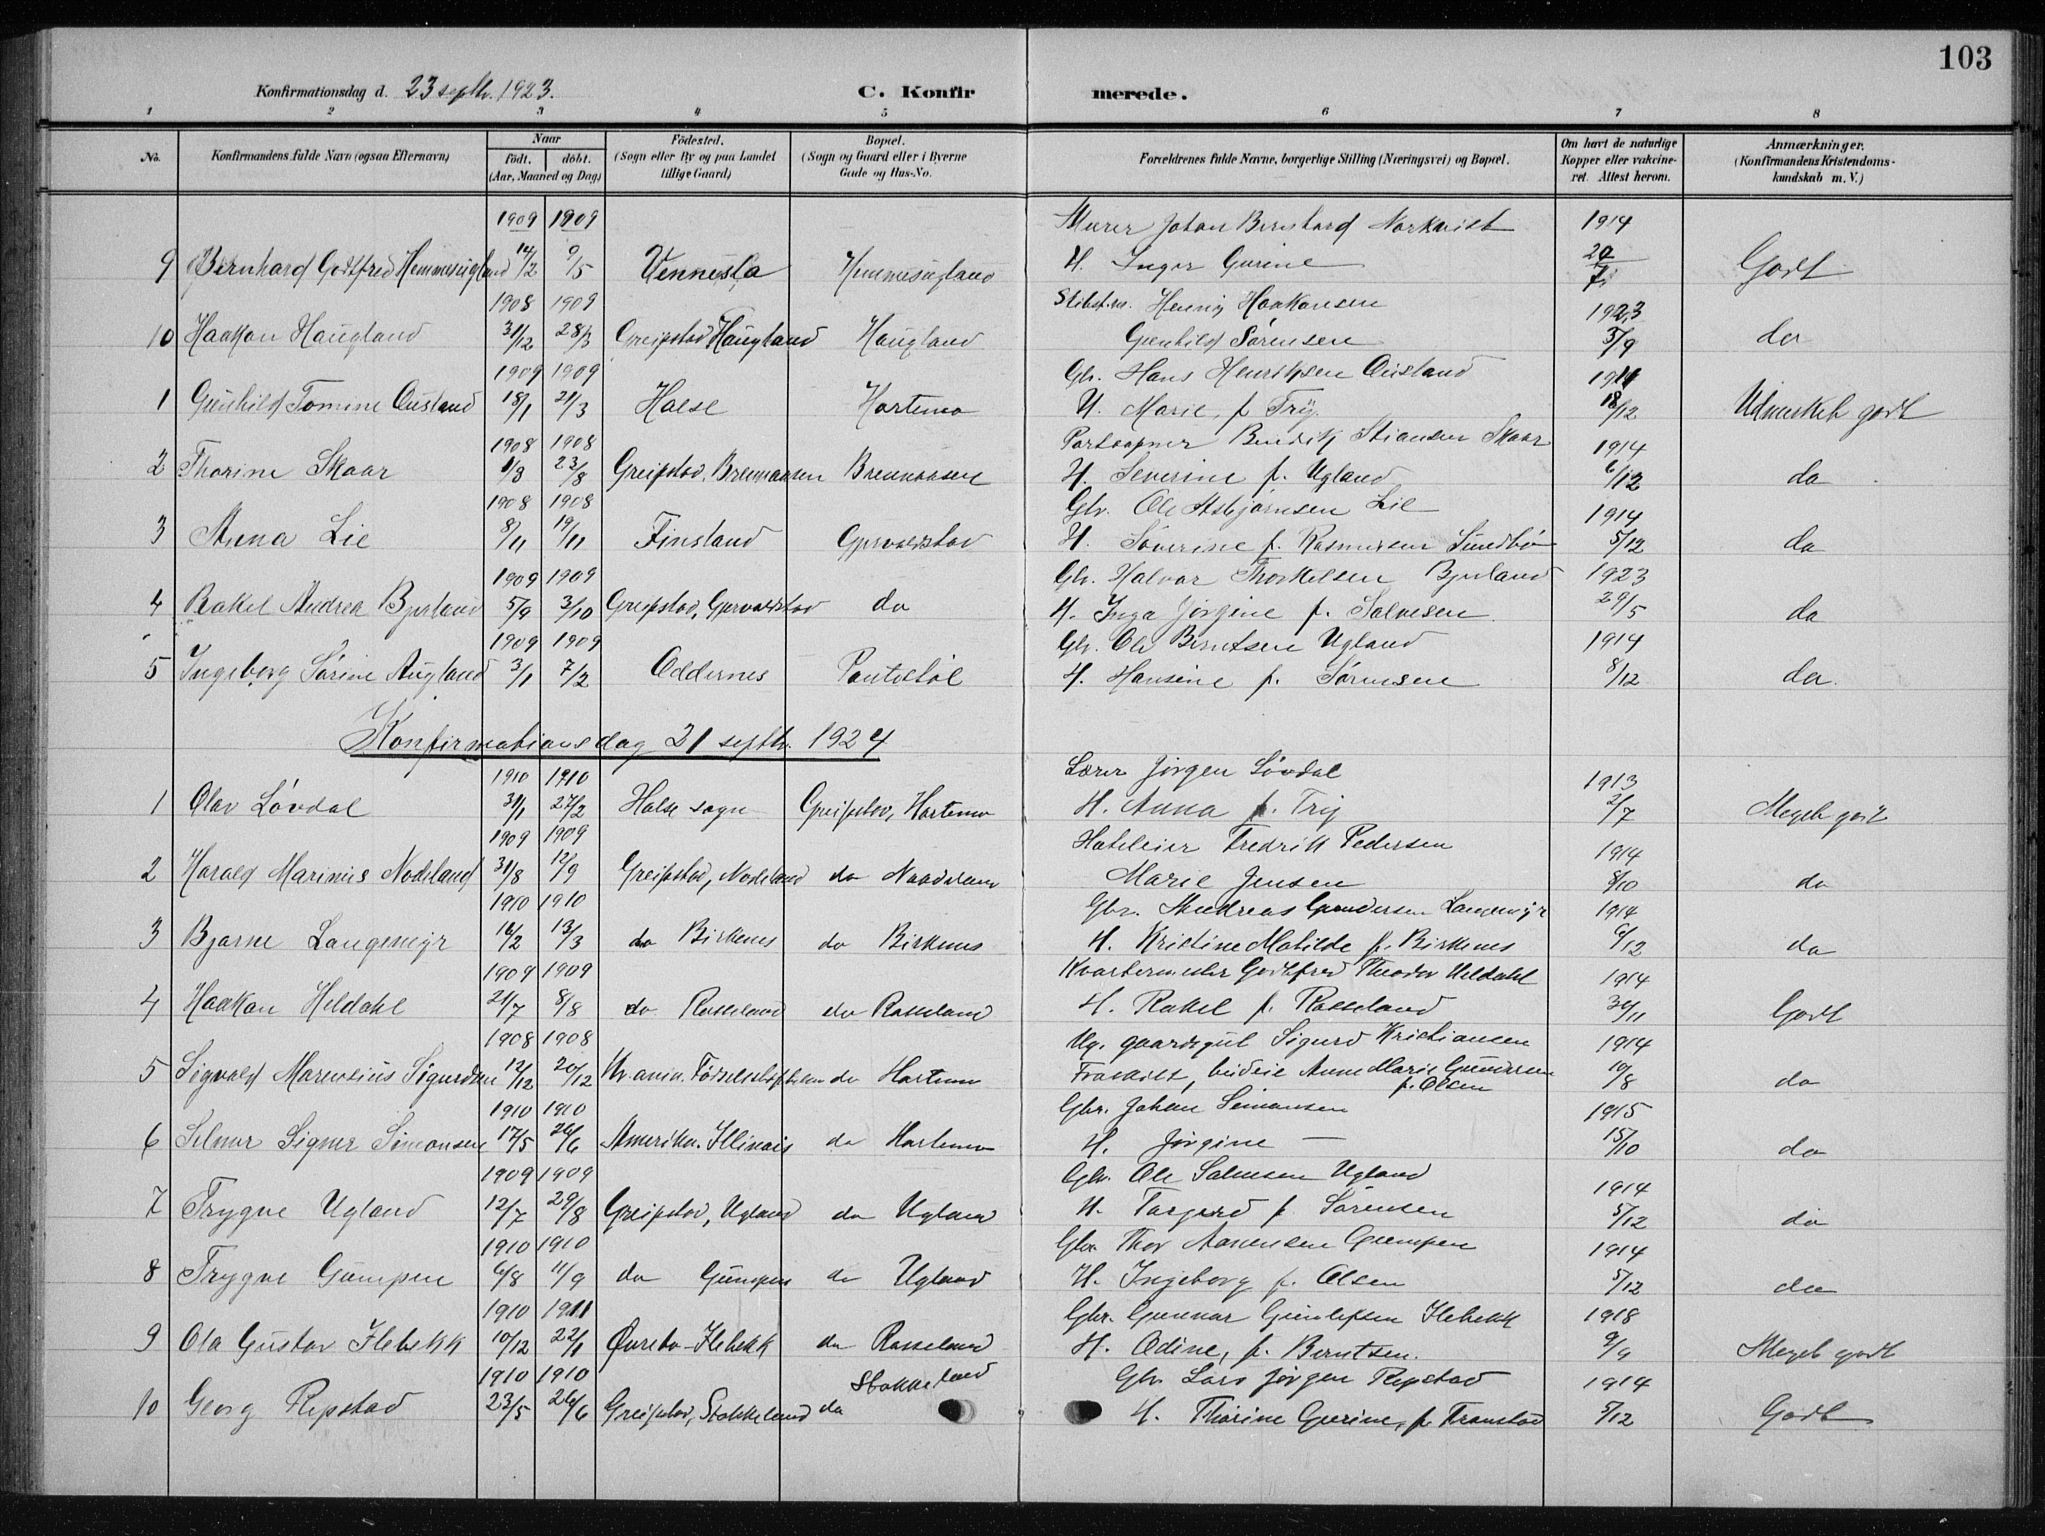 103
Konfirmationsdag d. 23 septbr. 1923. C. Konfirmerede.
1 2 3 4 5 6 7 8
No. Konfirmandens fulde Navn (ogsaa Efternavn) Naar født. døbt. (Aar, Maaned og Dag) Fødested. (Sogn eller By og paa Landet tillige Gaard) Bopæl. (Sogn og Gaard eller i Byerne Gade og Hus-No. Forældrenes fulde Navne, borgerlige Stilling (Næringsvei) og Bopæl. Om havt de naturlige Kopper eller vakcineret. Attest herom. Anmærkninger. (Konfirmandens Kristendomskundskab m. V.)
1909 1909 Murer Johan Bernhard Norkvist 1914
9 Bernhard Godtfred Hemmesugland 14/2 9/5 Vennesla Hemmesugland H. Inger Gurine Godt
1908 1909 Henrig Haakonsen 1923
10 Haakon Haugland 31/12 28/3 Greipstad Haugland Haugland Gunhild Sørensen 3/9 do
1909 1909 Gbr. Hans Henriksen Ousland 1911
1 Gunhild Tomine Ousland 18/1 21/3 Halse Hortemo H. Marie f. Try. 18/12 Udmerket godt
1908 1908 Postaapner Bendik Stiansen Skaar 1914
2 Thorine Skaar 1/8 23/8 Greipstad, Brennaasen Brennaasen H. Severine f. Ugland 6/12 do
1908 1908 Gbr. Ole Asbjørnsen Lie 1914
3 Anna Lie 8/11 19/11 Finsland H. Severine f. Rasmussen Sundbø 5/12 do
1909 1909 Gbr. Halvor Thorkelsen Bjorland 1923
4 Rakel Andrea Bjorland 5/9 3/10 Greipstad, do H. Inga Jørgine f. Salvesen 29/5 do
1909 1909 Gbr. Ole Berntsen Ugland 1914
5 Ingeborg Sørine Augland 3/1 7/2 Oddernes H. Hansine f. Sørensen 8/12 do
Konfirmationsdag 21 septbr. 1924
1910 1910 Lærer Jørgen Løvdal 1913
1 Olav Løvdal 31/1 27/2 Halse sogn Greipstad, Hortemo H. Anna f. Try 2/7 Meget godt
1909 1909 Fredrik Pedersen 1914
2 Harald Marinius Nodeland 31/8 12/9 Greipstad, Nodeland do Marie Jensen 8/10 do
1910 1910 Gbr. Andreas Gundersen Langemyr 1914
3 Bjarne Langemyr 16/2 13/3 do Birkenes do Birkenes H. Kristine Matilde f. Birkenes 6/12 do
1909 1909 Kvartermester Godtfred Theodor Heldahl 1914
4 Haakon Heldahl 21/7 8/8 do Rosseland do Rosseland H. Rakel f. Rosseland 30/11 Godt
1908 1908 Ug. gaardsgut Sigurd Kristiansen 1914
5 Sigvald Marenlius Sigurdsen 12/12 20/12 do Hortemo Fraskilt, Anne Marie Gundersen f. Olsen 10/8 do
1910 1910 Gbr. Johan Simonsen 1915
6 Selmer Signer Simonsen 17/5 26/6 Amerika. Illinois do Hortemo H. Jørgine — 15/10 do
1909 1909 Gbr. Ole Salvesen Ugland 1914
7 Trygve Ugland 12/7 29/8 Greipstad, Ugland do Ugland H. Targerd f. Sørensen 5/12 do
1910 1910 Gbr. Thor Aanensen Gumpen 1914
8 Trygve Gumpen 6/8 11/9 do Gumpen do Ugland H. Ingeborg f. Olsen 5/12 do
1910 1911 Gbr. Gunnar Gunleksen Ilebekk 1918
9 Ola Gustav Ilebekk 10/12 22/1 Øvrebø-Ilebekk do Rosseland H. Odine, f. Berntsen. 9/9 Meget godt
1910 1910 Stokkeland Gbr. Lars Jørgen Repstad 1914
10 Georg Repstad 23/5 26/6 Greipstad, Stokkeland do H. Thorine Gurine, f. Tronstad 5/12 Godt